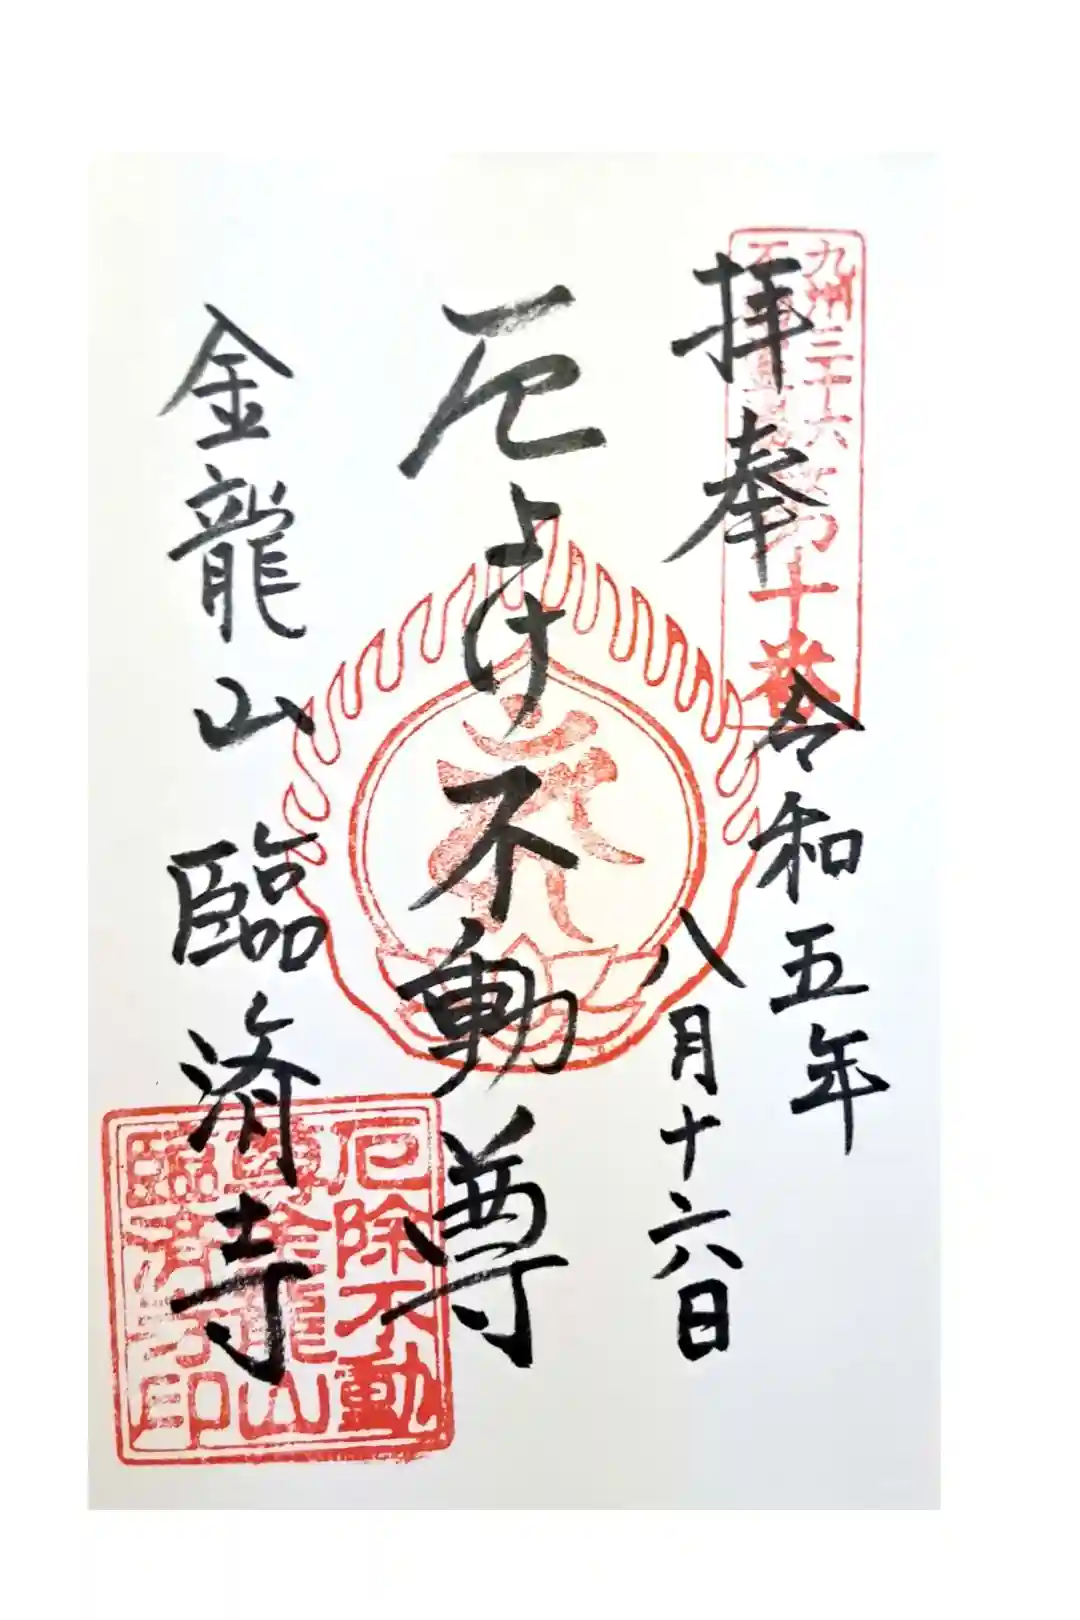 九州三十六
十番
拝奉
令和五年
八月十六日
厄よけ不動尊
金龍山 臨済寺
厄除不動
尊金龍山
臨済寺印